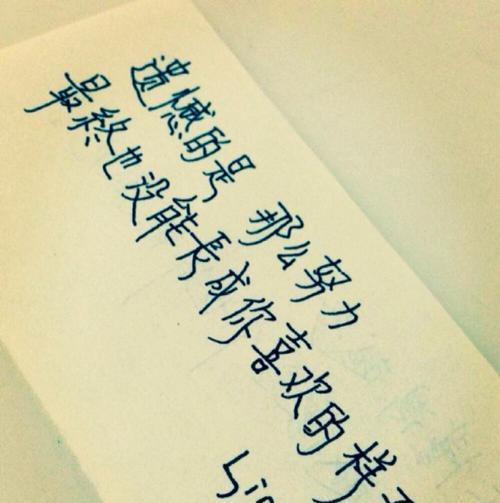 遗憾的是 那么努力
最終也没能長成你喜欢的样